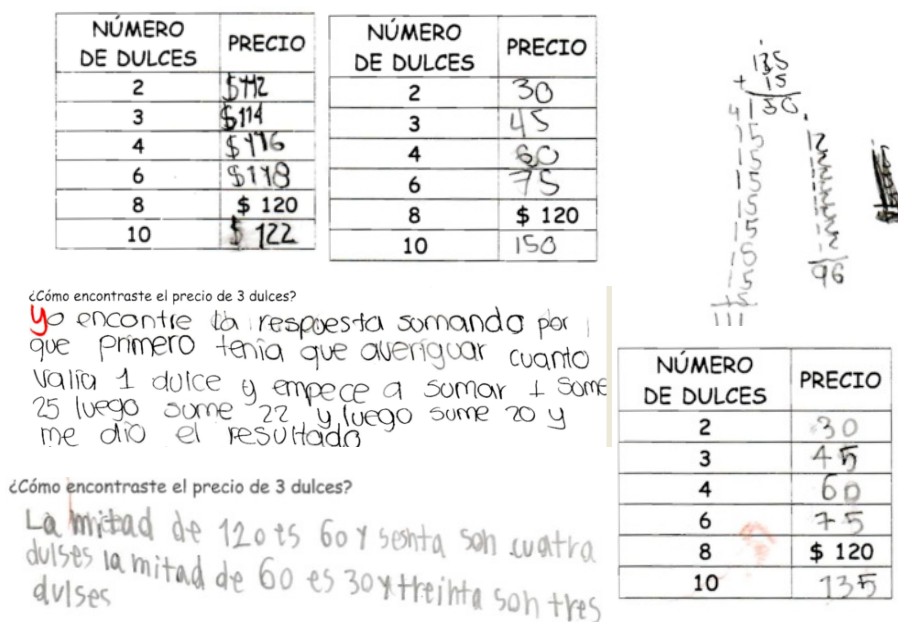 NÚMERO DE DULCES PRECIO
2 $112
3 $114
4 $116
6 $118
8 $ 120
10 $ 122
NÚMERO DE DULCES PRECIO
2 30
3 45
4 60
6 75
8 $ 120
10 150
135
+ 15
150
4
15
15
15
15
15
15
15
15
111
12
12
12
12
12
12
12
12
96
¿Cómo encontraste el precio de 3 dulces?
yo encontre la respuesta sumando por
que primero tenia que averiguar cuanto
valia 1 dulce y empece a sumar + Some
25 luego sume 22 y luego sume 20 y
me dio el resultado
NÚMERO DE DULCES PRECIO
2 30
3 45
4 60
6 75
8 $ 120
10 135
¿Cómo encontraste el precio de 3 dulces?
La mitad de 120 es 60 y sesnta son cuatra
dulses la mitad de 60 es 30 y treinta son tres
dulses